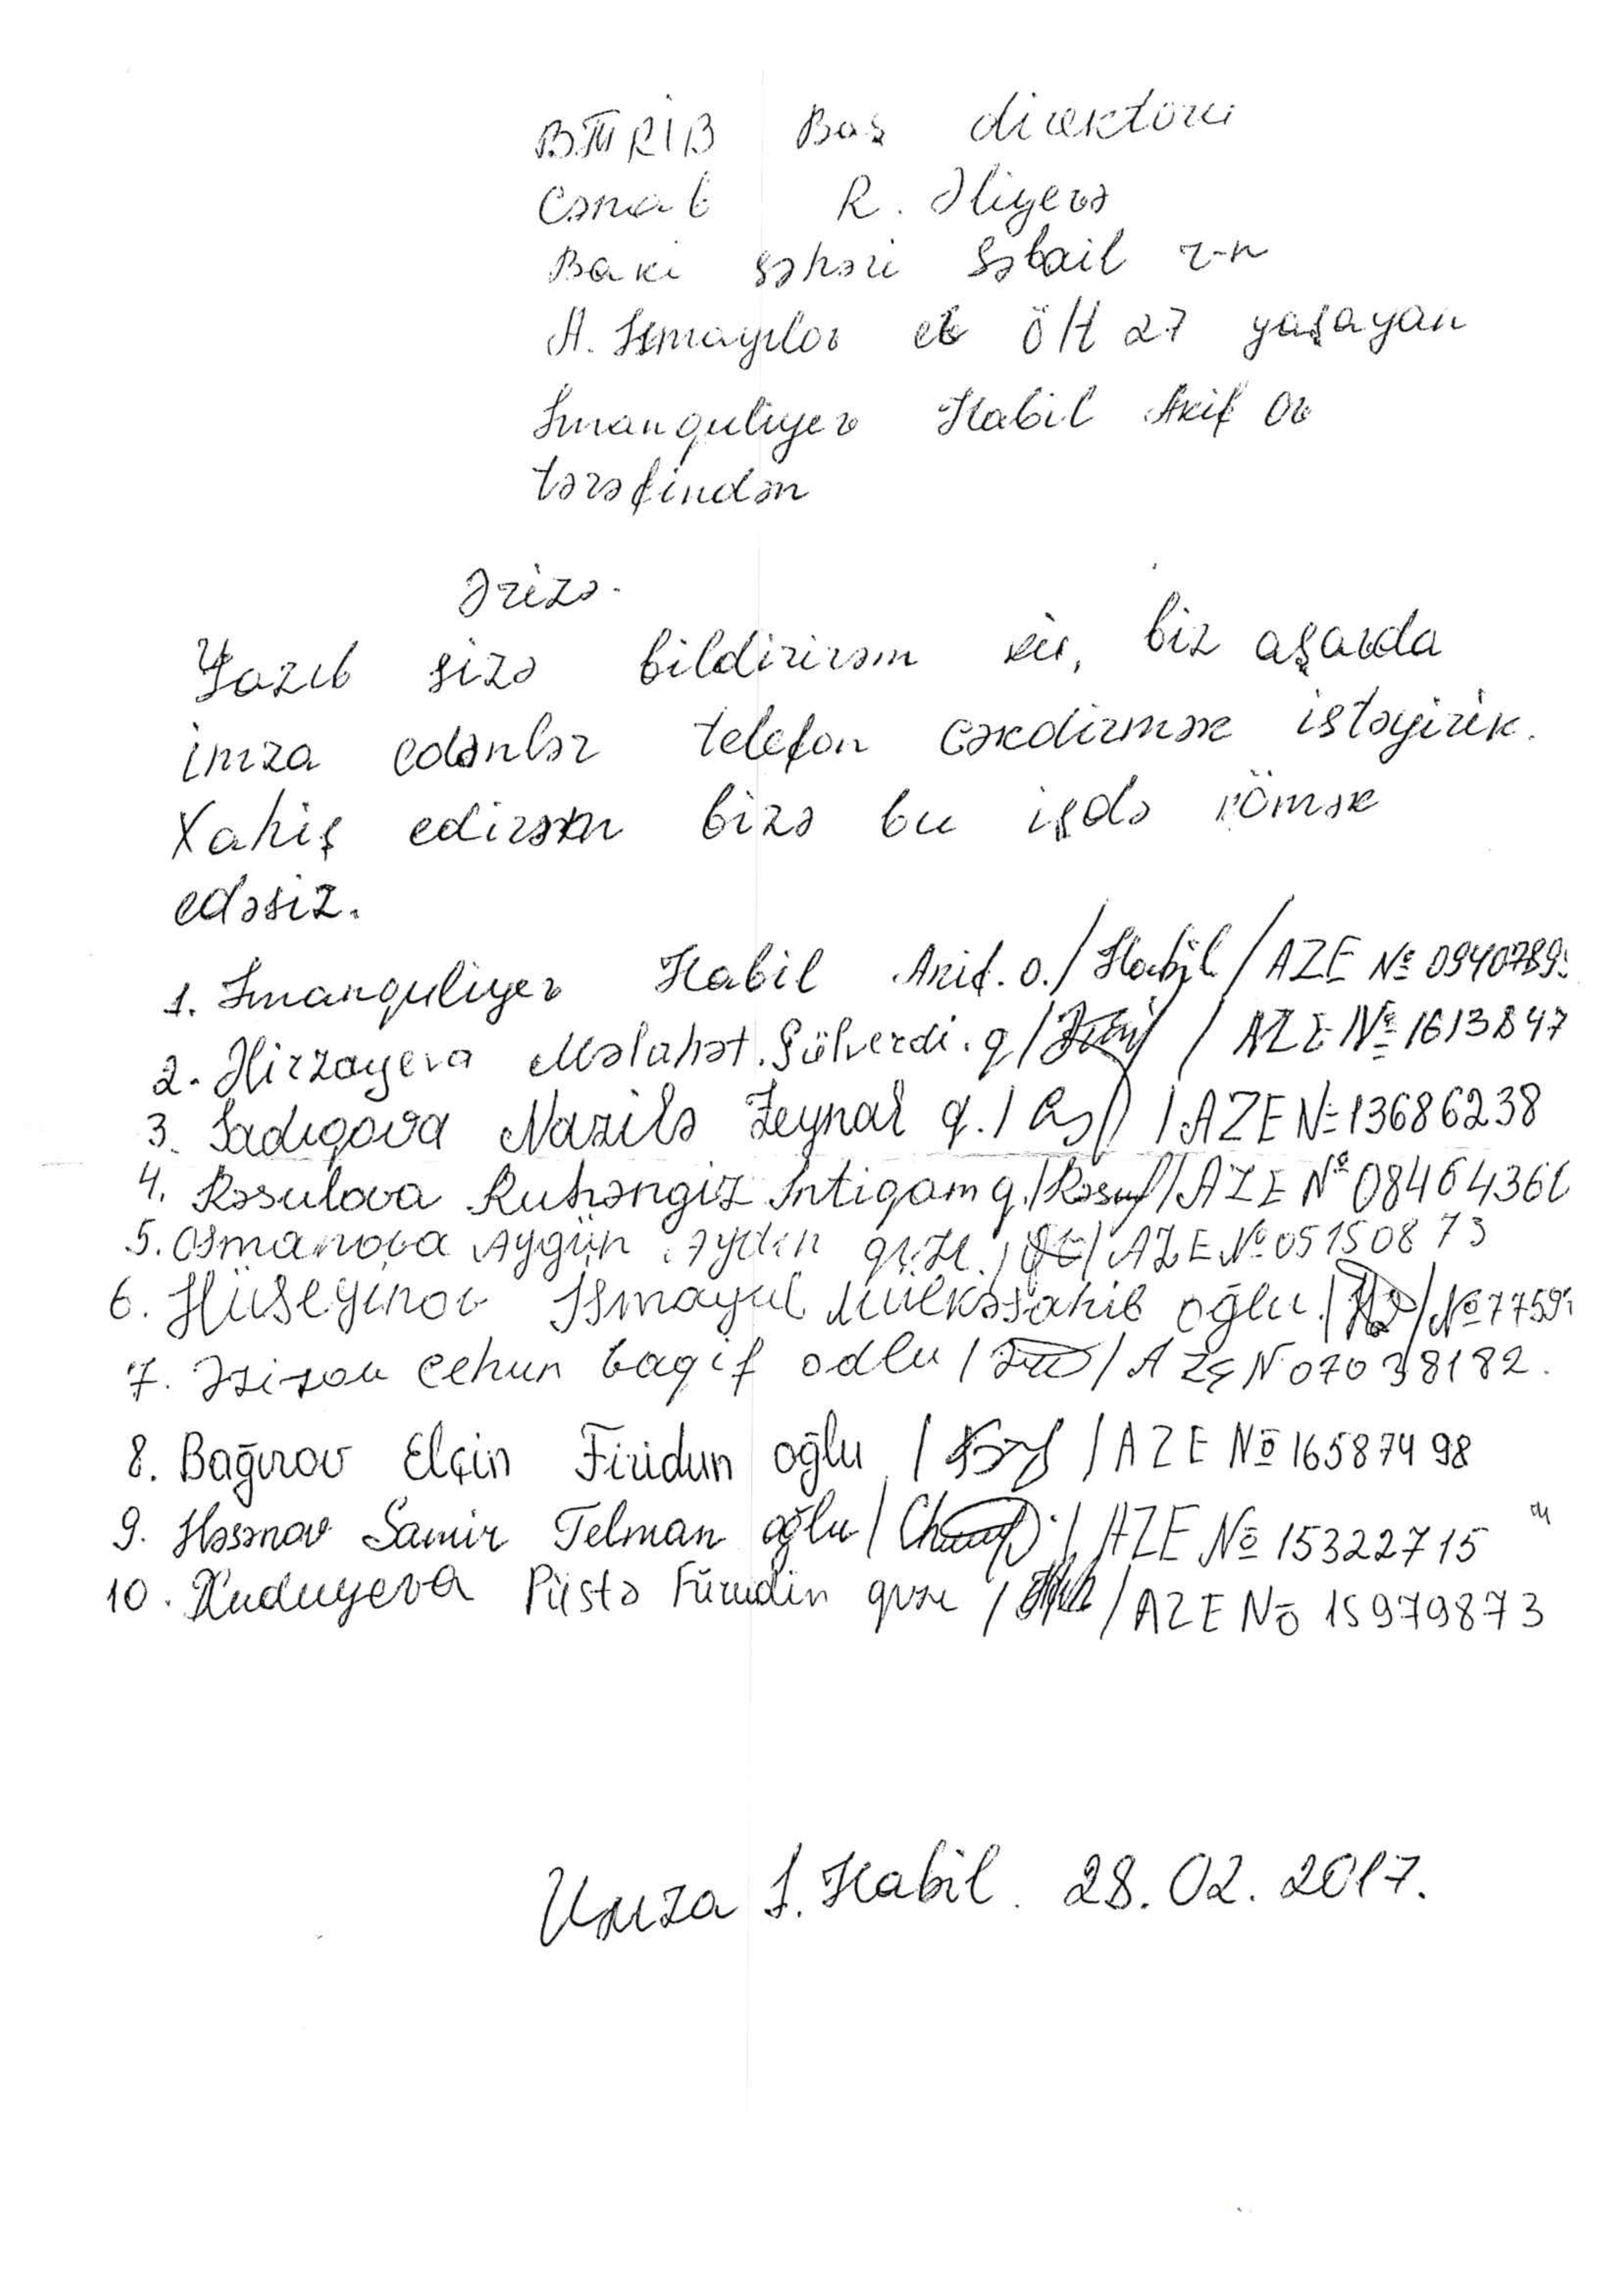 BTRİB Baş direktoru
Cənab R. Əliyevə
Baki şəhəri Səbail r-n
A. İsmayılov ev 27 yaşayan
İmanquliyev Habil Akif
tərəfindən
Ərizə.
Yazıb sizə bildirirəm ki, biz aşaıda
imza edənlər telefon cəkdirmək istəyirik.
Xahiş edirəm bizə bu işdə kömək
edəsiz.
1. İmanquliyev Habil Akif. o. / Habil / AZE № 0940789
2. Mirzayeva Məlahət. Gülverdi. q / / AZE № 1613847
3. Sadıqova Nazilə Zeynal q. / / AZE № 13686238
4. Rəsulova Ruhəngiz İntiqam q. / Rəsul / AZE № 0846436
5. Osmanova Aygün Aydın qızı / / AZE № 05150873
6. Hüseyinov İsmayıl Mülkəsahib oğlu / / № 7759
7. Əzizov Cehun Vaqif odlu / / AZE N 07038182.
8. Bağırov Elçin Firidun oğlu / / AZE № 16587498
9. Həsənov Samir Telman oğlu / / AZE № 15322715
10. Xuduyeva Püstə Firudin qızı / / AZE № 15979873
İmza İ. Habil. 28.02.2017.